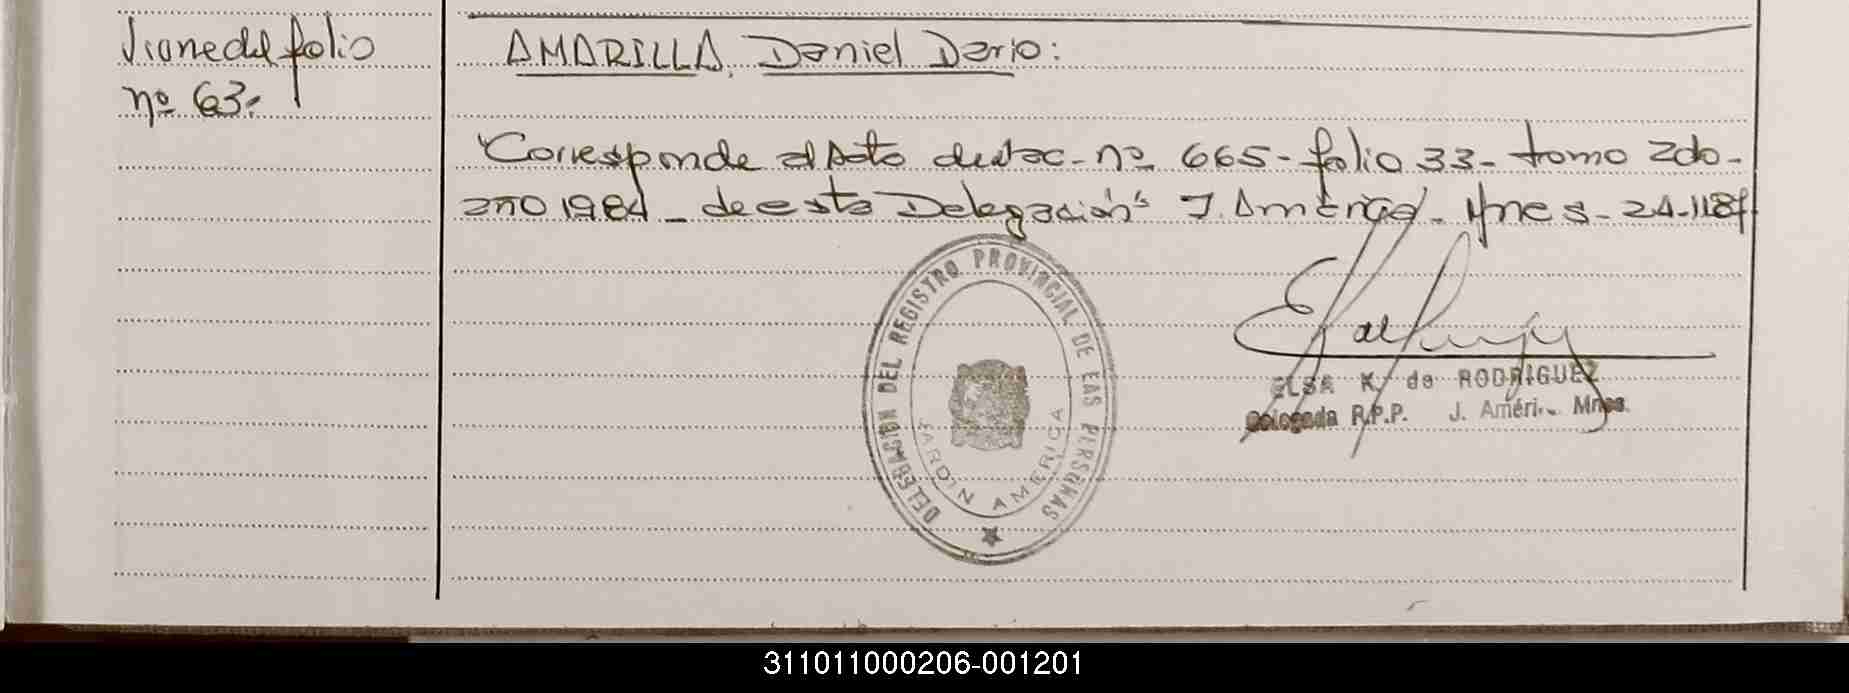 Viene del folio
nº 63.
AMARILLA, Daniel Dario:
"Corresponde al Acta de Nac. nº 665 - folio 33 - tomo 2do -
año 1984 - de esta Delegación" J. América - Mnes -
DELEGACION DEL REGISTRO PROVINCIAL DE LAS PERSONAS
JARDIN AMERICA
ELSA K. de RODRIGUEZ
Delegada R.P.P. J. Améri.. Mnes.
311011000206-001201